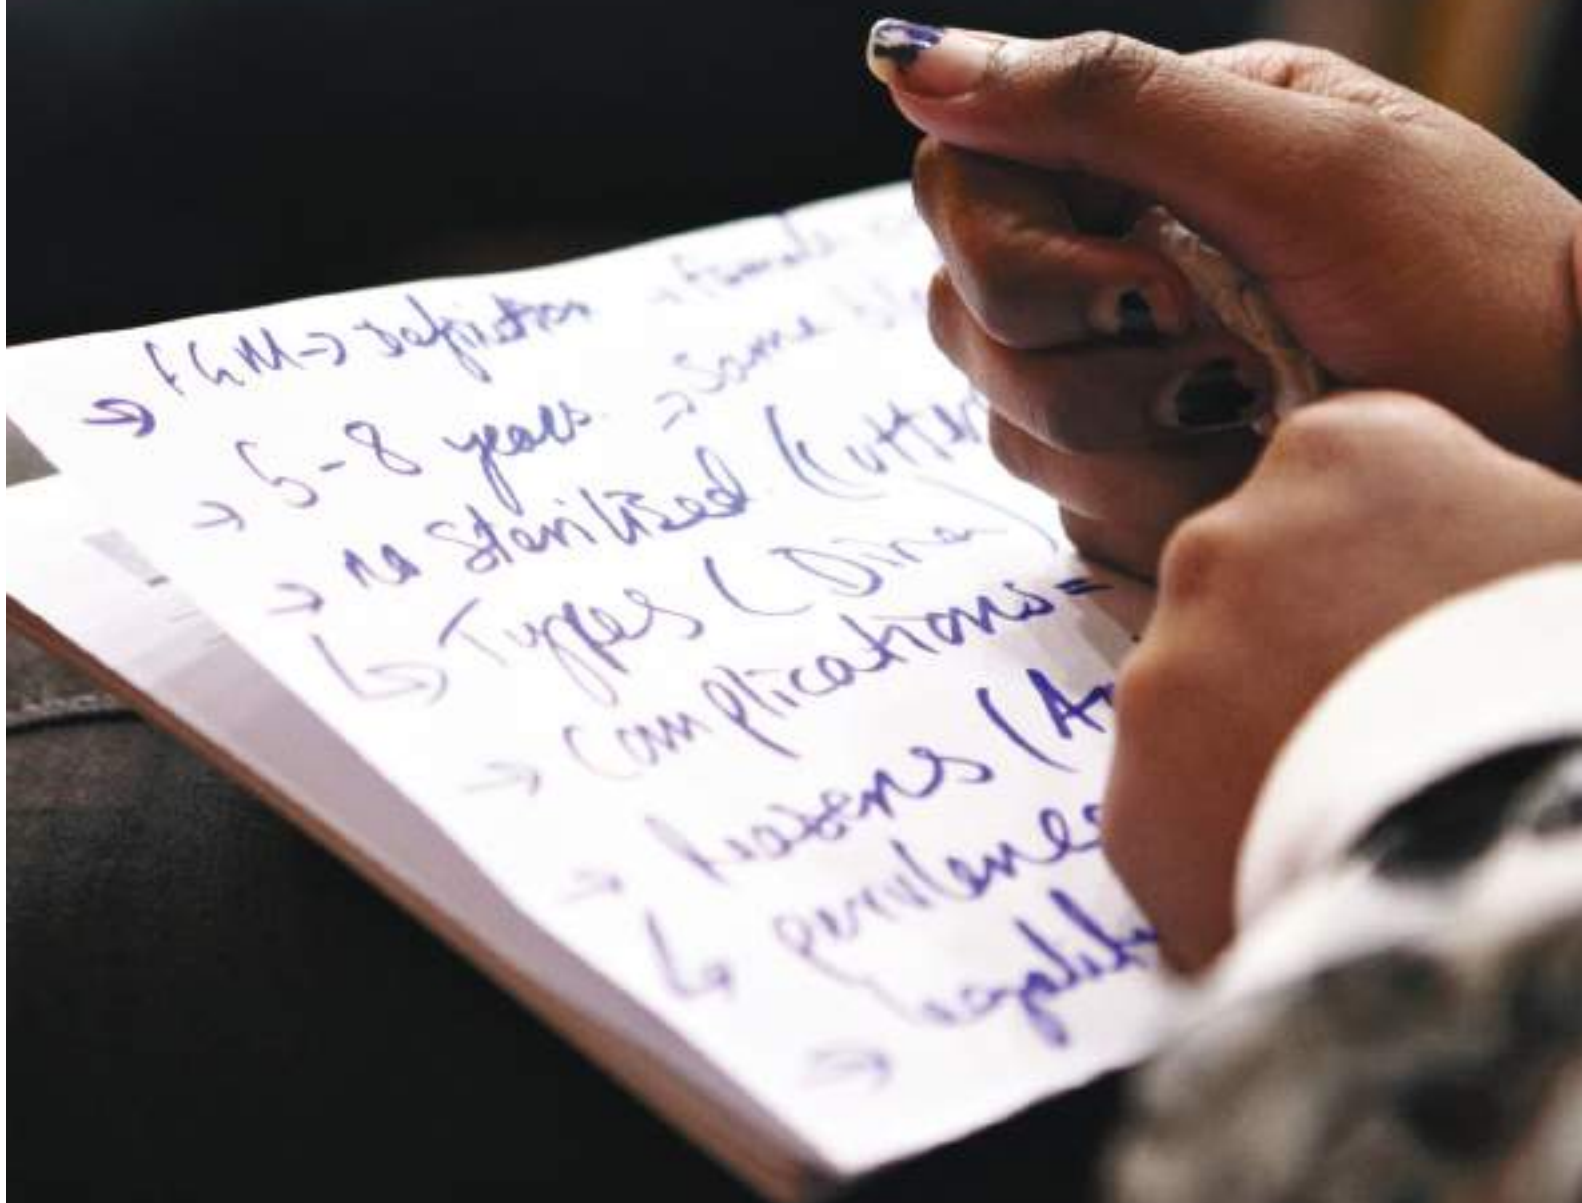 → FGM → Definition → Female
→ 5-8 years. → Some
→ no Sterilised (Cutter
↳ Types (Dina)
→ Complications =
→ Reasons (A
↳ prevalence
→